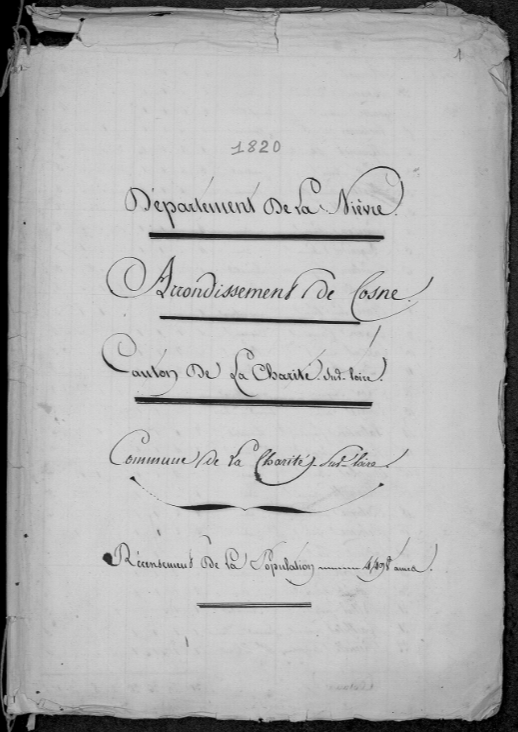 1
1820
Département De La Nièvre.
Arrondissement de Cosne.
Canton De La Charité Sur-loire.
Commune de la Charité Sur-loire.
Récensement De La Population